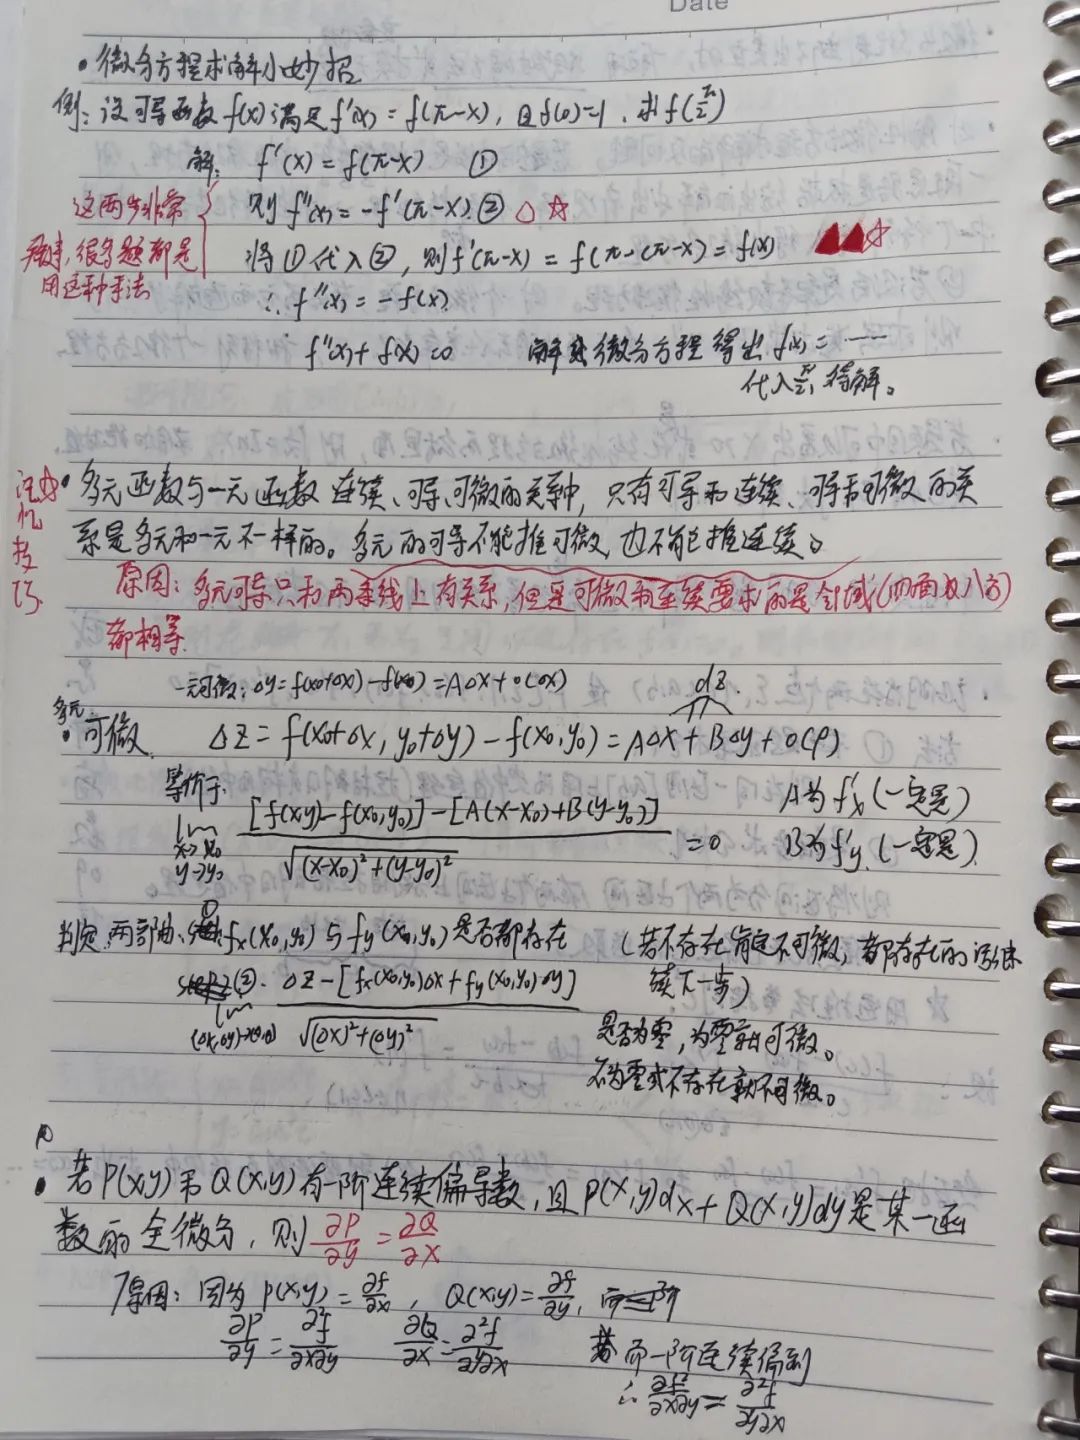 Date
·微分方程求解小妙招
例：设可导函数f(x)满足f'(x)=f(π-x)，且f(0)=1，求f(π/2)
解： f'(x)=f(π-x) ①
则 f''(x)=-f'(π-x) ② △ ☆
将①代入②，则f'(π-x)=f(π-(π-x)=f(x) ▲▲☆
这两步非常
关键，很多题都是
用这种手法
∴ f''(x)=-f(x)
f''(x)+f(x)=0 解这微分方程得出f(x)=……
代入π/2，得解。
·多元函数与一元函数 连续、可导、可微的关系中，只有可导和连续、可导和可微的关
系是多元和一元不一样的。多元的可导不能推可微，也不能推连续。
注☆
忆
技
巧
原因：多元可导只和两条线上有关系，但是可微和连续要求的是邻域(四面八方)
都相等.
一元可微：Δy=f(x₀+Δx)-f(x₀)=AΔx+o(Δx)
dz.
多元
·可微 Δz=f(x₀+Δx, y₀+Δy)-f(x₀,y₀)=AΔx+BΔy+o(ρ)
等价于.
lim x→x₀ y→y₀ [f(x,y)-f(x₀,y₀)]-[A(x-x₀)+B(y-y₀)] / √((x-x₀)²+(y-y₀)²) =0
A为f'x (一定是)
B为f'y (一定是).
判定 两部曲、① fx(x₀,y₀)与fy(x₀,y₀)是否都存在 (若不存在肯定不可微，都存在的话继
续下一步)
②. lim (Δx,Δy)→(0,0) Δz-[fx(x₀,y₀)Δx+fy(x₀,y₀)Δy] / √((Δx)²+(Δy)²)
是否为零，为零就可微。
不为零或不存在就不可微。
·若P(x,y)和Q(x,y)有一阶连续偏导数，且P(x,y)dx+Q(x,y)dy是某一函
数的全微分，则 ∂P/∂y = ∂Q/∂x
原因：因为P(x,y)=∂f/∂x ，Q(x,y)=∂f/∂y，
∂P/∂y=∂²f/∂x∂y ∂Q/∂x=∂²f/∂y∂x 而一阶连续偏到
∴ ∂f²/∂x∂y=∂²f/∂y∂x